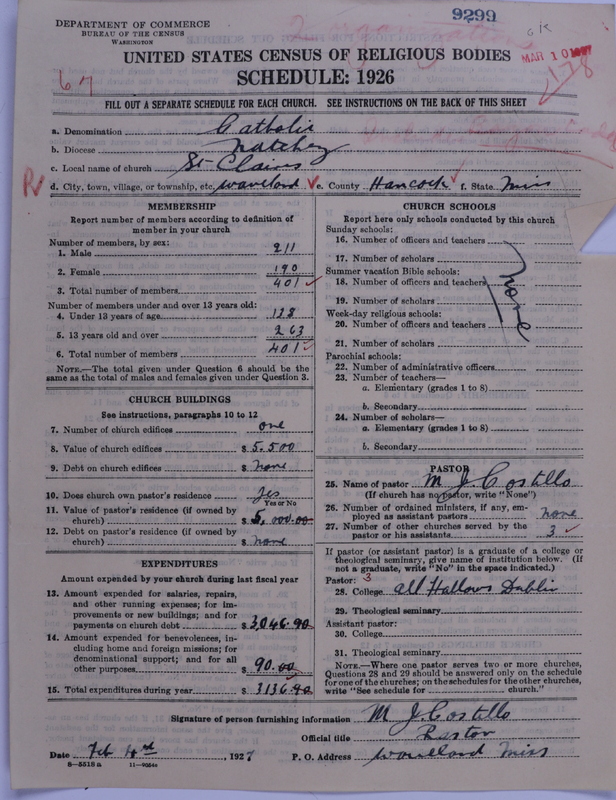 DEPARTMENT OF COMMERCE
BUREAU OF THE CENSUS
WASHINGTON
9299
MAR 10 1927
178
67
UNITED STATES CENSUS OF RELIGIOUS BODIES
SCHEDULE: 1926
FILL OUT A SEPARATE SCHEDULE FOR EACH CHURCH. SEE INSTRUCTIONS ON THE BACK OF THIS SHEET
a. Denomination Catholic
b. Diocese Natchez
c. Local name of church St Clairs
d. City, town, village, or township, etc. Waveland e. County Hancock f. State Miss
MEMBERSHIP
Report number of members according to definition of member in your church
Number of members, by sex:
1. Male 211
2. Female 190
3. Total number of members 401
Number of members under and over 13 years old:
4. Under 13 years of age 138
5. 13 years old and over 263
6. Total number of members 401
NOTE.—The total given under Question 6 should be
same as the total of males and females given under Question 3.
CHURCH BUILDINGS
See instructions, paragraphs 10 to 12
7. Number of church edifices one
8. Value of church edifices $ 5.500
9. Debt on church edifices $ none
10. Does church own pastor's residence yes
Yes or No
11. Value of pastor's residence (if owned by
church) $ 5,000.00
12. Debt on pastor's residence (if owned by
church) $ none
EXPENDITURES
Amount expended by your church during last fiscal year
13. Amount expended for salaries, repairs,
and other running expenses; for im-
provements or new buildings; and for
payments on church debt $ 3,046.90
14. Amount expended for benevolences, in-
cluding home and foreign missions; for
denominational support; and for all
other purposes $ 90.00
15. Total expenditures during year $ 3136.90
CHURCH SCHOOLS
Report here only schools conducted by this church
Sunday schools:
16. Number of officers and teachers
17. Number of scholars
Summer vacation Bible schools:
18. Number of officers and teachers
none
19. Number of scholars
Week-day religious schools:
20. Number of officers and teachers
21. Number of scholars
Parochial schools:
22. Number of administrative officers
23. Number of teachers—
a. Elementary (grades 1 to 8)
b. Secondary
24. Number of scholars—
a. Elementary (grades 1 to 8)
b. Secondary
PASTOR
25. Name of pastor M J. Costillo
(If church has no pastor, write "None")
26. Number of ordained ministers, if any, em-
ployed as assistant pastors none
27. Number of other churches served by the
pastor or his assistants 3
If pastor (or assistant pastor) is a graduate of a college or
theological seminary, give name of institution below. (If
not a graduate, write "No" in the space indicated.)
Pastor: 3
28. College All Hallows Dublin
29. Theological seminary
Assistant pastor:
30. College
31. Theological seminary
NOTE.—Where one pastor serves two or more churches,
Questions 28 and 29 should be answered only on the schedule
for one of the churches; on the schedules for the other churches,
write "See schedule for church."
Signature of person furnishing information M J. Costillo
Official title Pastor
Date Feb 4rd, 1927 P. O. Address Waveland Miss
8—5518 a